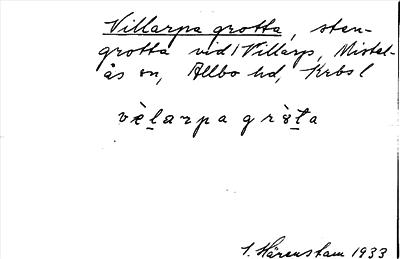 Villarpa grotta, sten-
grotta vid Villarp, Mistel-
ås sn, Allbo hd, Krbs l
vè̱larpa grò̱ta
Härenstam 1933